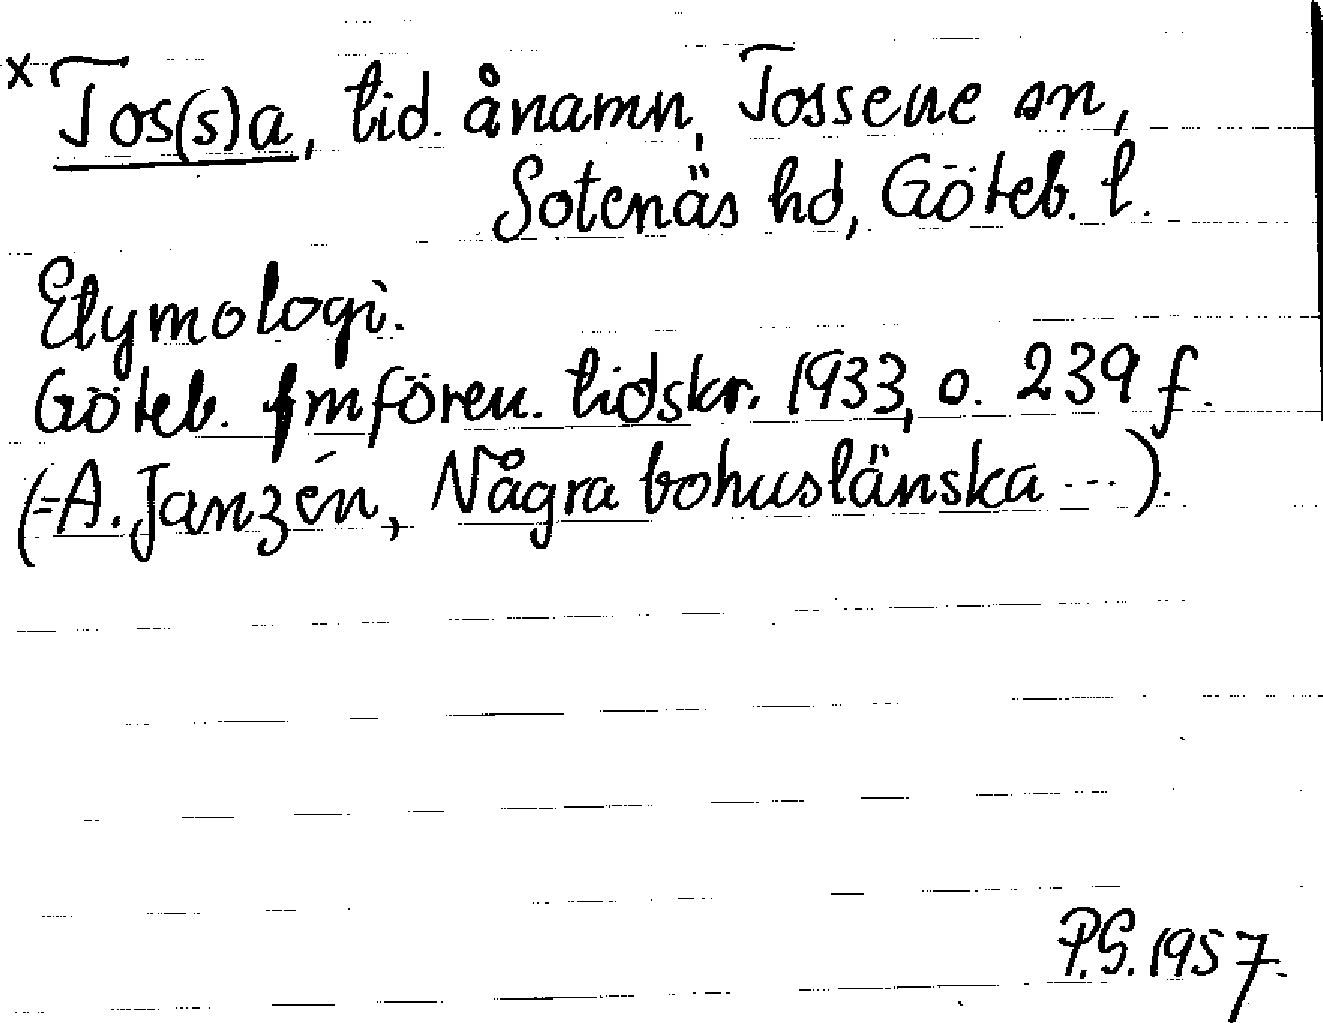 x Tos(s)a, tid. ånamn, Tossene sn,
Sotenäs hd, Göteb. l.
Etymologi.
Göteb. fmfören. tidskr. 1933, s. 239 f.
(=A. Janzén, Några bohuslänska ...).
P.S. 1957.